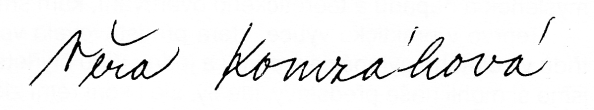 Věra Komzáková